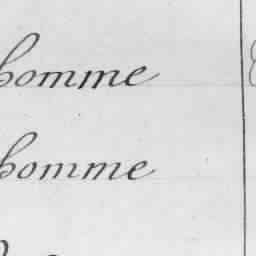 homme
homme